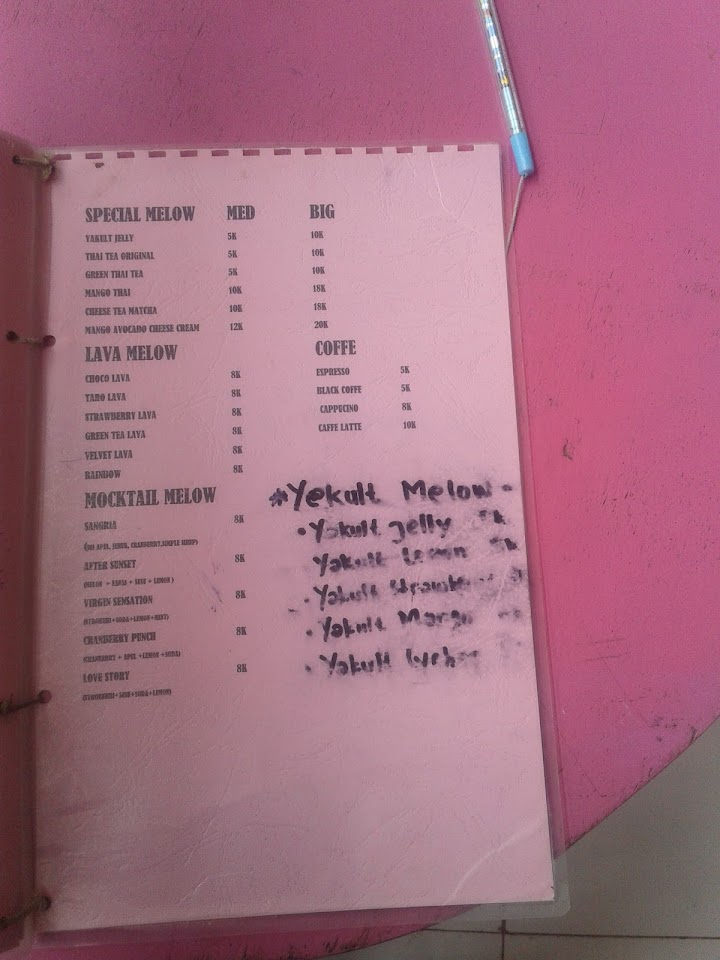 SPECIAL MELOW MED BIG
YAKULT JELLY 5K 10K
THAI TEA ORIGINAL 5K 10K
GREEN THAI TEA 5K 10K
MANGO THAI 10K 18K
CHEESE TEA MATCHA 10K 18K
MANGO AVOCADO CHEESE CREAM 12K 20K
LAVA MELOW
CHOCO LAVA 8K
TARO LAVA 8K
STRAWBERRY LAVA 8K
GREEN TEA LAVA 8K
VELVET LAVA 8K
RAINBOW 8K
COFFE
ESPRESSO 5K
BLACK COFFE 5K
CAPPUCINO 8K
CAFFE LATTE 10K
MOCKTAIL MELOW
SANGRIA 8K
AFTER SUNSET 8K
VIRGIN SENSATION 8K
CRANBERRY PUNCH 8K
(CRANBERRY + APEL +LEMON +SODA)
LOVE STORY 8K
#Yekult Melow
• Yakult jelly
Yakult Lemon
• Yakult
• Yakult Mango
• Yakult lychee